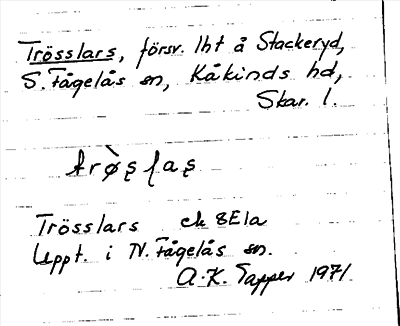 Trösslars, försv. lht å Stackeryd,
S. Fågelås sn, Kåkinds hd,
Skar. l.
Trösslars ek 8E1a
Uppt. i N. Fågelås sn.
A.K. Tapper 1971.